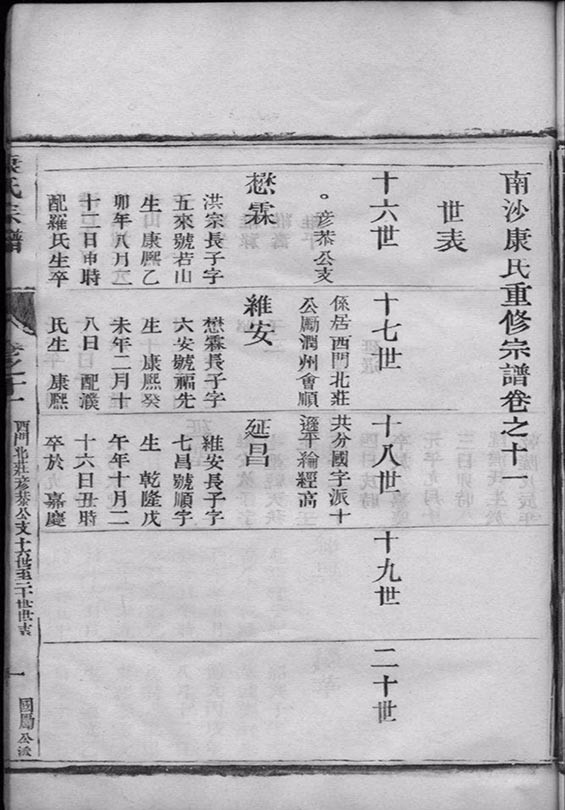 南沙康氏重修宗譜卷之十一
世表
十六世
十七世
十八世
十九世
二十世
。彥恭公支
係居西門北莊
共分國字派十
公勵潤州會順
遜平綸經高
懋霖
洪宗長子字
五來號若山
生康熙乙
卯年八月二
十二日申時
配羅氏生卒
維安
懋霖長子字
六安號福先
生 康熙癸
未年二月十
八日 配濮
氏生 康熙
延昌
維安長子字
七昌號順字
生 乾隆戊
午年十月二
十六日丑時
卒於 嘉慶
康氏宗譜
卷之十一
西門北莊彥恭公支十六世至二十世世表
一
國勵公派